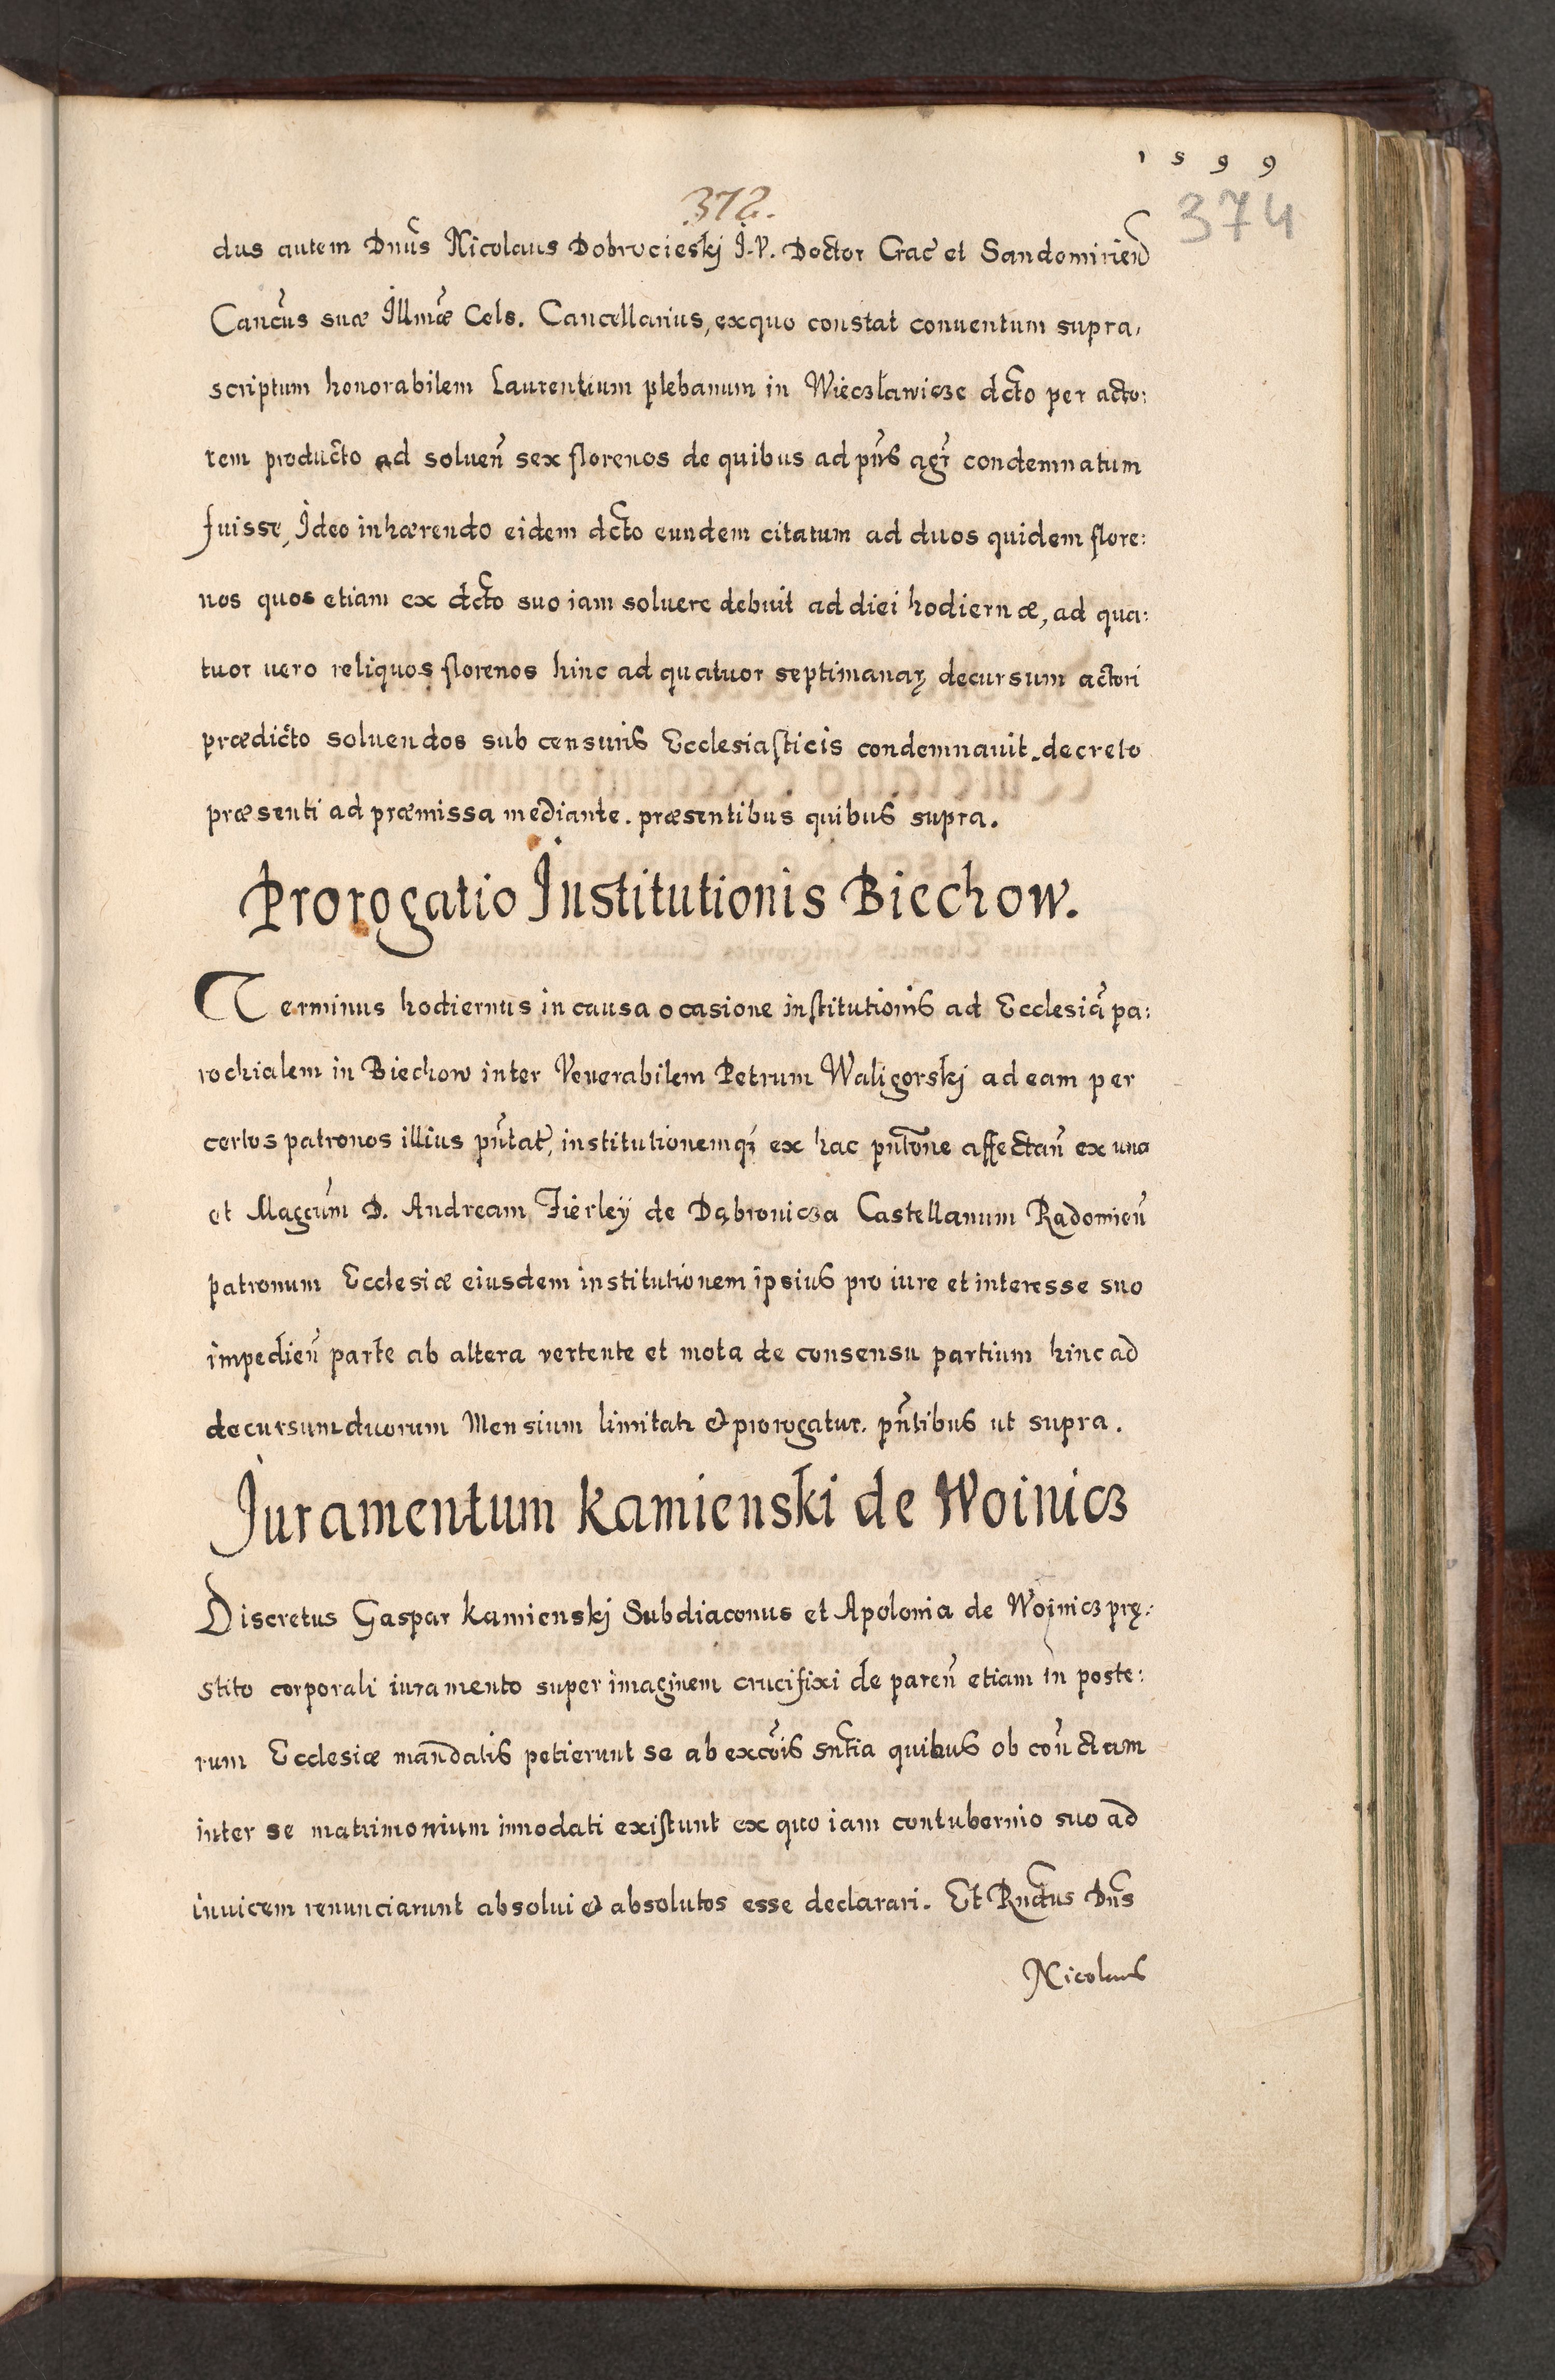 1599
372.
374
dus autem Dnus Nicolaus Dobrocieskj J.V. Doctor Crac et Sandomirien
Cancus suæ Illmæ Cels. Cancellarius, ex quo constat conuentum supra,
scriptum honorabilem Laurentium plebanum in Wieczławicze dcto per acto:
rem producto ad soluen sex florenos de quibus ad pns agr condemnatum
fuisse, Ideo inhærendo eidem dcto eundem citatum ad duos quidem flore:
nos quos etiam ex dcto suo iam soluere debuit ad diei hodiernæ, ad qua:
tuor uero reliquos florenos hinc ad quatuor septimanaꝝ decursum actori
prædicto soluendos sub censuris Ecclesiasticis condemnauit decreto
præsenti ad præmissa mediante. præsentibus quibus supra.
Prorogatio Institutionis Biechow.
Terminus hodiernus in causa ocasione institutionis ad Ecclesiā pa:
rochialem in Biechow inter Venerabilem Petrum Waligorskj ad eam per
certos patronos illius pntat, institutionemqȝ ex hac pntone affectan ex una
et Magcum D. Andream Fierleÿ de Dąbrouicza Castellanum Radomien
patronum Ecclesiæ eiusdem institutionem ipsius pro iure et interesse suo
impedien parte ab altera vertente et mota de consensu partium hinc ad
decursum duorum Mensium limitatr & prorogatur. pntibus ut supra.
Juramentum Kamienski de Woinicz
Discretus Gaspar Kamienskj Subdiaconus et Apolonia de Wojnicz prę:
stito corporali iuramento super imaginem crucifixi de paren etiam in poste:
rum Ecclesiæ mandatis petierunt se ab excois sntia quibus ob conctam
inter se matrimonium innodati existunt ex quo iam contubernio suo ad
inuicem renunciarunt absolui & absolutos esse declarari. Et Rndus Dns
Nicolaus